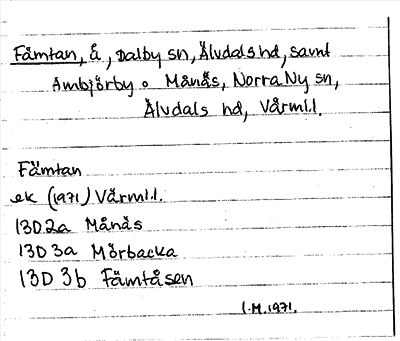 Fämtan, å, Dalby sn, Älvdals hd, samt
Ambjörby o Månäs, Norra Ny sn,
Älvdals hd, Värml.
Fämtan
ek (1971) Värml.
13D 2a Månäs
13D 3a Mörbacka
13D 3b Fämtåsen
I.M. 1971.